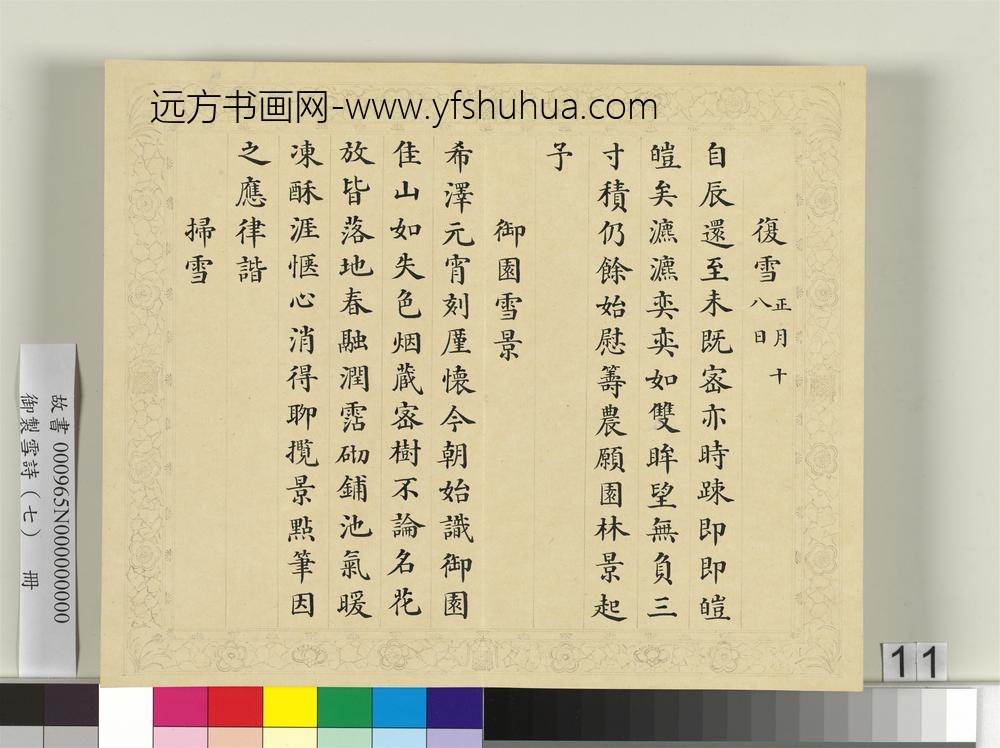 远方书画网-www.yfshuhua.com
復雪正月十八日
自辰還至未既宻亦時踈即即皚
皚矣瀌瀌奕奕如雙眸望無負三
寸積仍餘始慰籌農願園林景起
予
御園雪景
希澤元宵刻廑懷今朝始識御園
佳山如失色烟蔵宻樹不論名花
放皆落地春融潤霑砌鋪池氣暖
凍酥涯愜心消得聊攬景點筆因
之應律諧
掃雪
故書 000965N000000000
御製雪詩（七） 冊
11